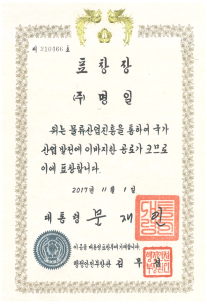 제 210466 호
표 창 장
(주) 명 일
위는 물류산업진흥을 통하여 국가
산업발전에 이바지한 공로가 크므로
이에 표창합니다.
2017년 11월 1일
대통령 문 재 인
이 증을 대통령표창부에 기재합니다.
행정안전부장관 김 부 겸